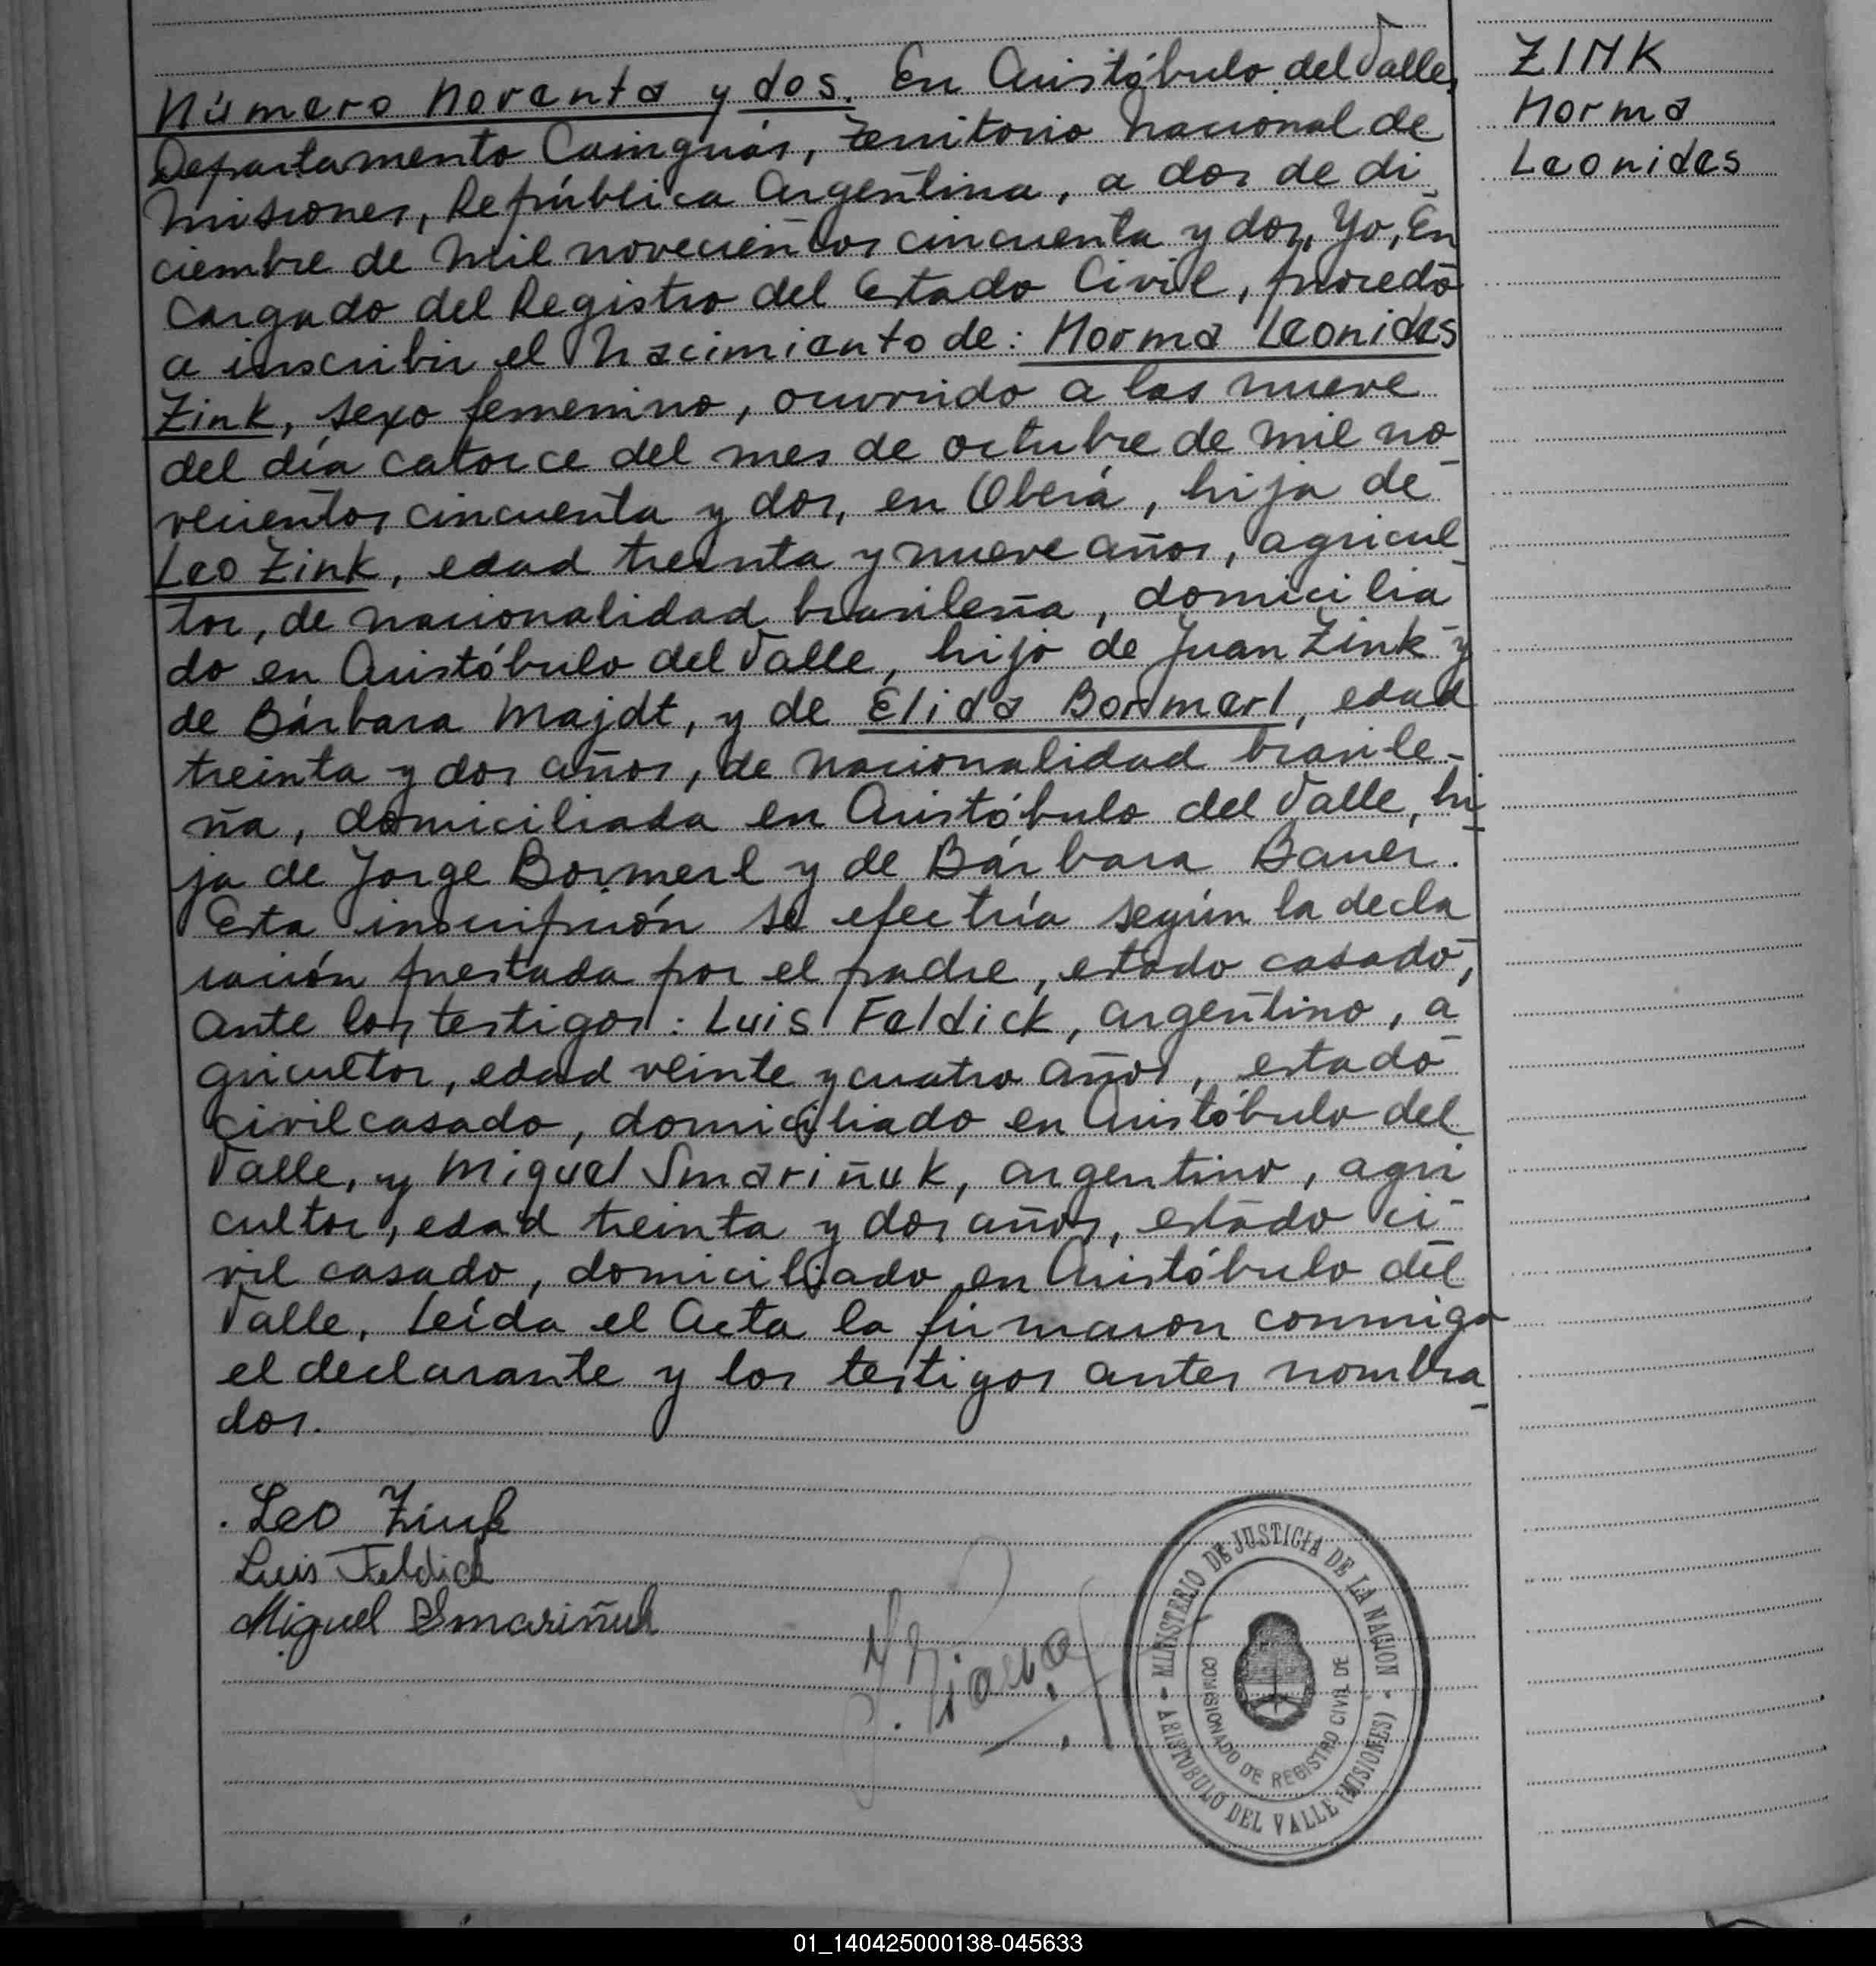 Número noventa y dos. En Aristóbulo del Valle,
Departamento Cainguás, territorio nacional de
Misiones, República Argentina, a dos de di
ciembre de mil novecientos cincuenta y dos, Yo, En
cargado del Registro del Estado Civil, procedo
a inscribir el nacimiento de: Norma Leonidas
Zink, sexo femenino, ocurrido a las nueve
del día catorce del mes de octubre de mil no
vecientos cincuenta y dos, en Oberá, hija de
Leo Zink, edad treinta y nueve años, agricul
tor, de nacionalidad brasileña, domicilia
do en Aristóbulo del Valle, hijo de Juan Zink y
de Bárbara Majdt, y de Elida Bormerl, edad
treinta y dos años, de nacionalidad brasile-
ña, domiciliada en Aristóbulo del Valle, hi
ja de Jorge Bormerl y de Bárbara Bauer.
Esta inscripción se efectúa según la decla
ración prestada por el padre, estado casado,
ante los testigos: Luis Feldick, argentino, a
gricultor, edad veinte y cuatro años, estado
civil casado, domiciliado en Aristóbulo del
Valle, y Miguel Smariñuk, argentino, agri
cultor, edad treinta y dos años, estado ci
vil casado, domiciliado en Aristóbulo del
Valle. Leída el Acta la firmaron conmigo
el declarante y los testigos antes nombra
dos.
Leo Zink
Luis Feldick
Miguel Smariñuk
ZINK
Norma
Leonidas
MINISTERIO DE JUSTICIA DE LA NACION
ARISTOBULO DEL VALLE (MISIONES)
COMISIONADO DE REGISTRO CIVIL DE
01_140425000138-045633